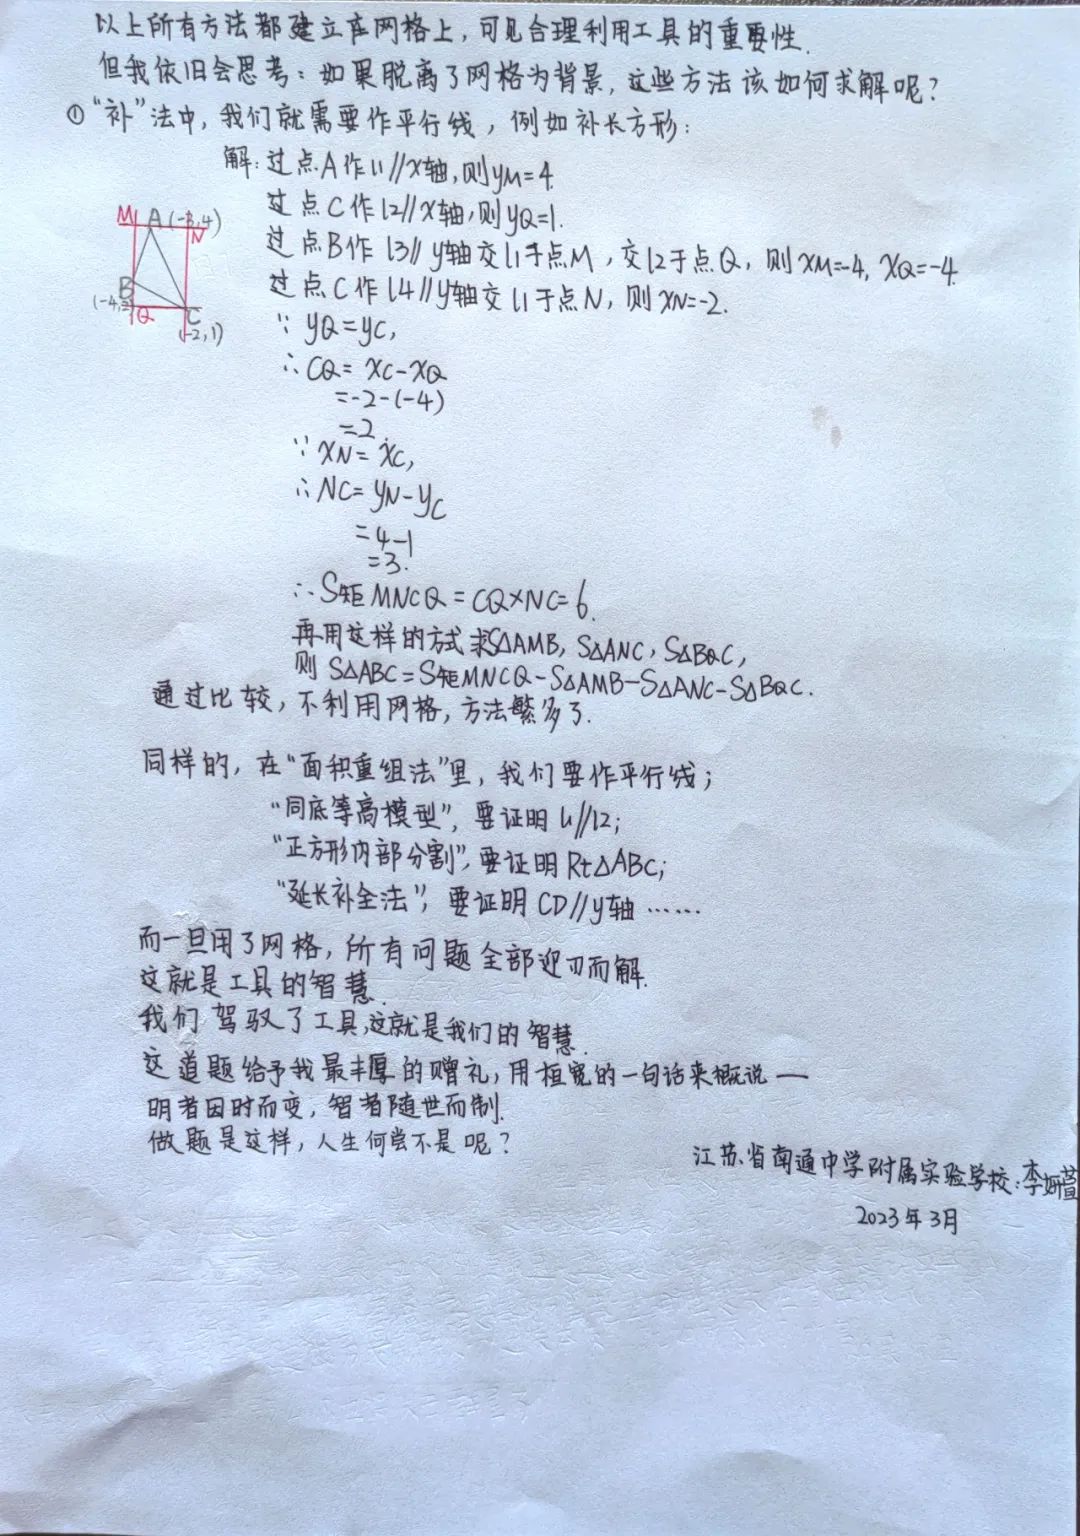 以上所有方法都建立在网格上,可见合理利用工具的重要性.
但我依旧会思考:如果脱离了网格为背景,这些方法该如何求解呢?
①“补”法中,我们就需要作平行线,例如补长方形:
解:过点A作l1//x轴,则yM=4.
过点C作l2//x轴,则yQ=1.
过点B作l3//y轴交l1于点M,交l2于点Q,则xM=-4,xQ=-4.
过点C作l4//y轴交l1于点N,则xN=-2.
M A(-3,4)
N
B
(-4,2)
Q C
(-2,1)
∵yQ=yC,
∴CQ=xC-xQ
=-2-(-4)
=2
∵xN=xC,
∴NC=yN-yC
=4-1
=3.
∴S矩MNCQ=CQ×NC=6.
再用这样的方式求S△AMB,S△ANC,S△BQC,
则S△ABC=S矩MNCQ-S△AMB-S△ANC-S△BQC.
通过比较,不利用网格,方法繁多了.
同样的,在“面积重组法”里,我们要作平行线;
“同底等高模型”,要证明l1//l2;
“正方形内部分割”,要证明Rt△ABC;
“延长补全法”,要证明CD//y轴……
而一旦用了网格,所有问题全部迎刃而解.
这就是工具的智慧.
我们驾驭了工具,这就是我们的智慧.
这道题给予我最丰厚的赠礼,用桓宽的一句话来概说——
明者因时而变,智者随世而制.
做题是这样,人生何尝不是呢?
江苏省南通中学附属实验学校:李妍萱
2023年3月